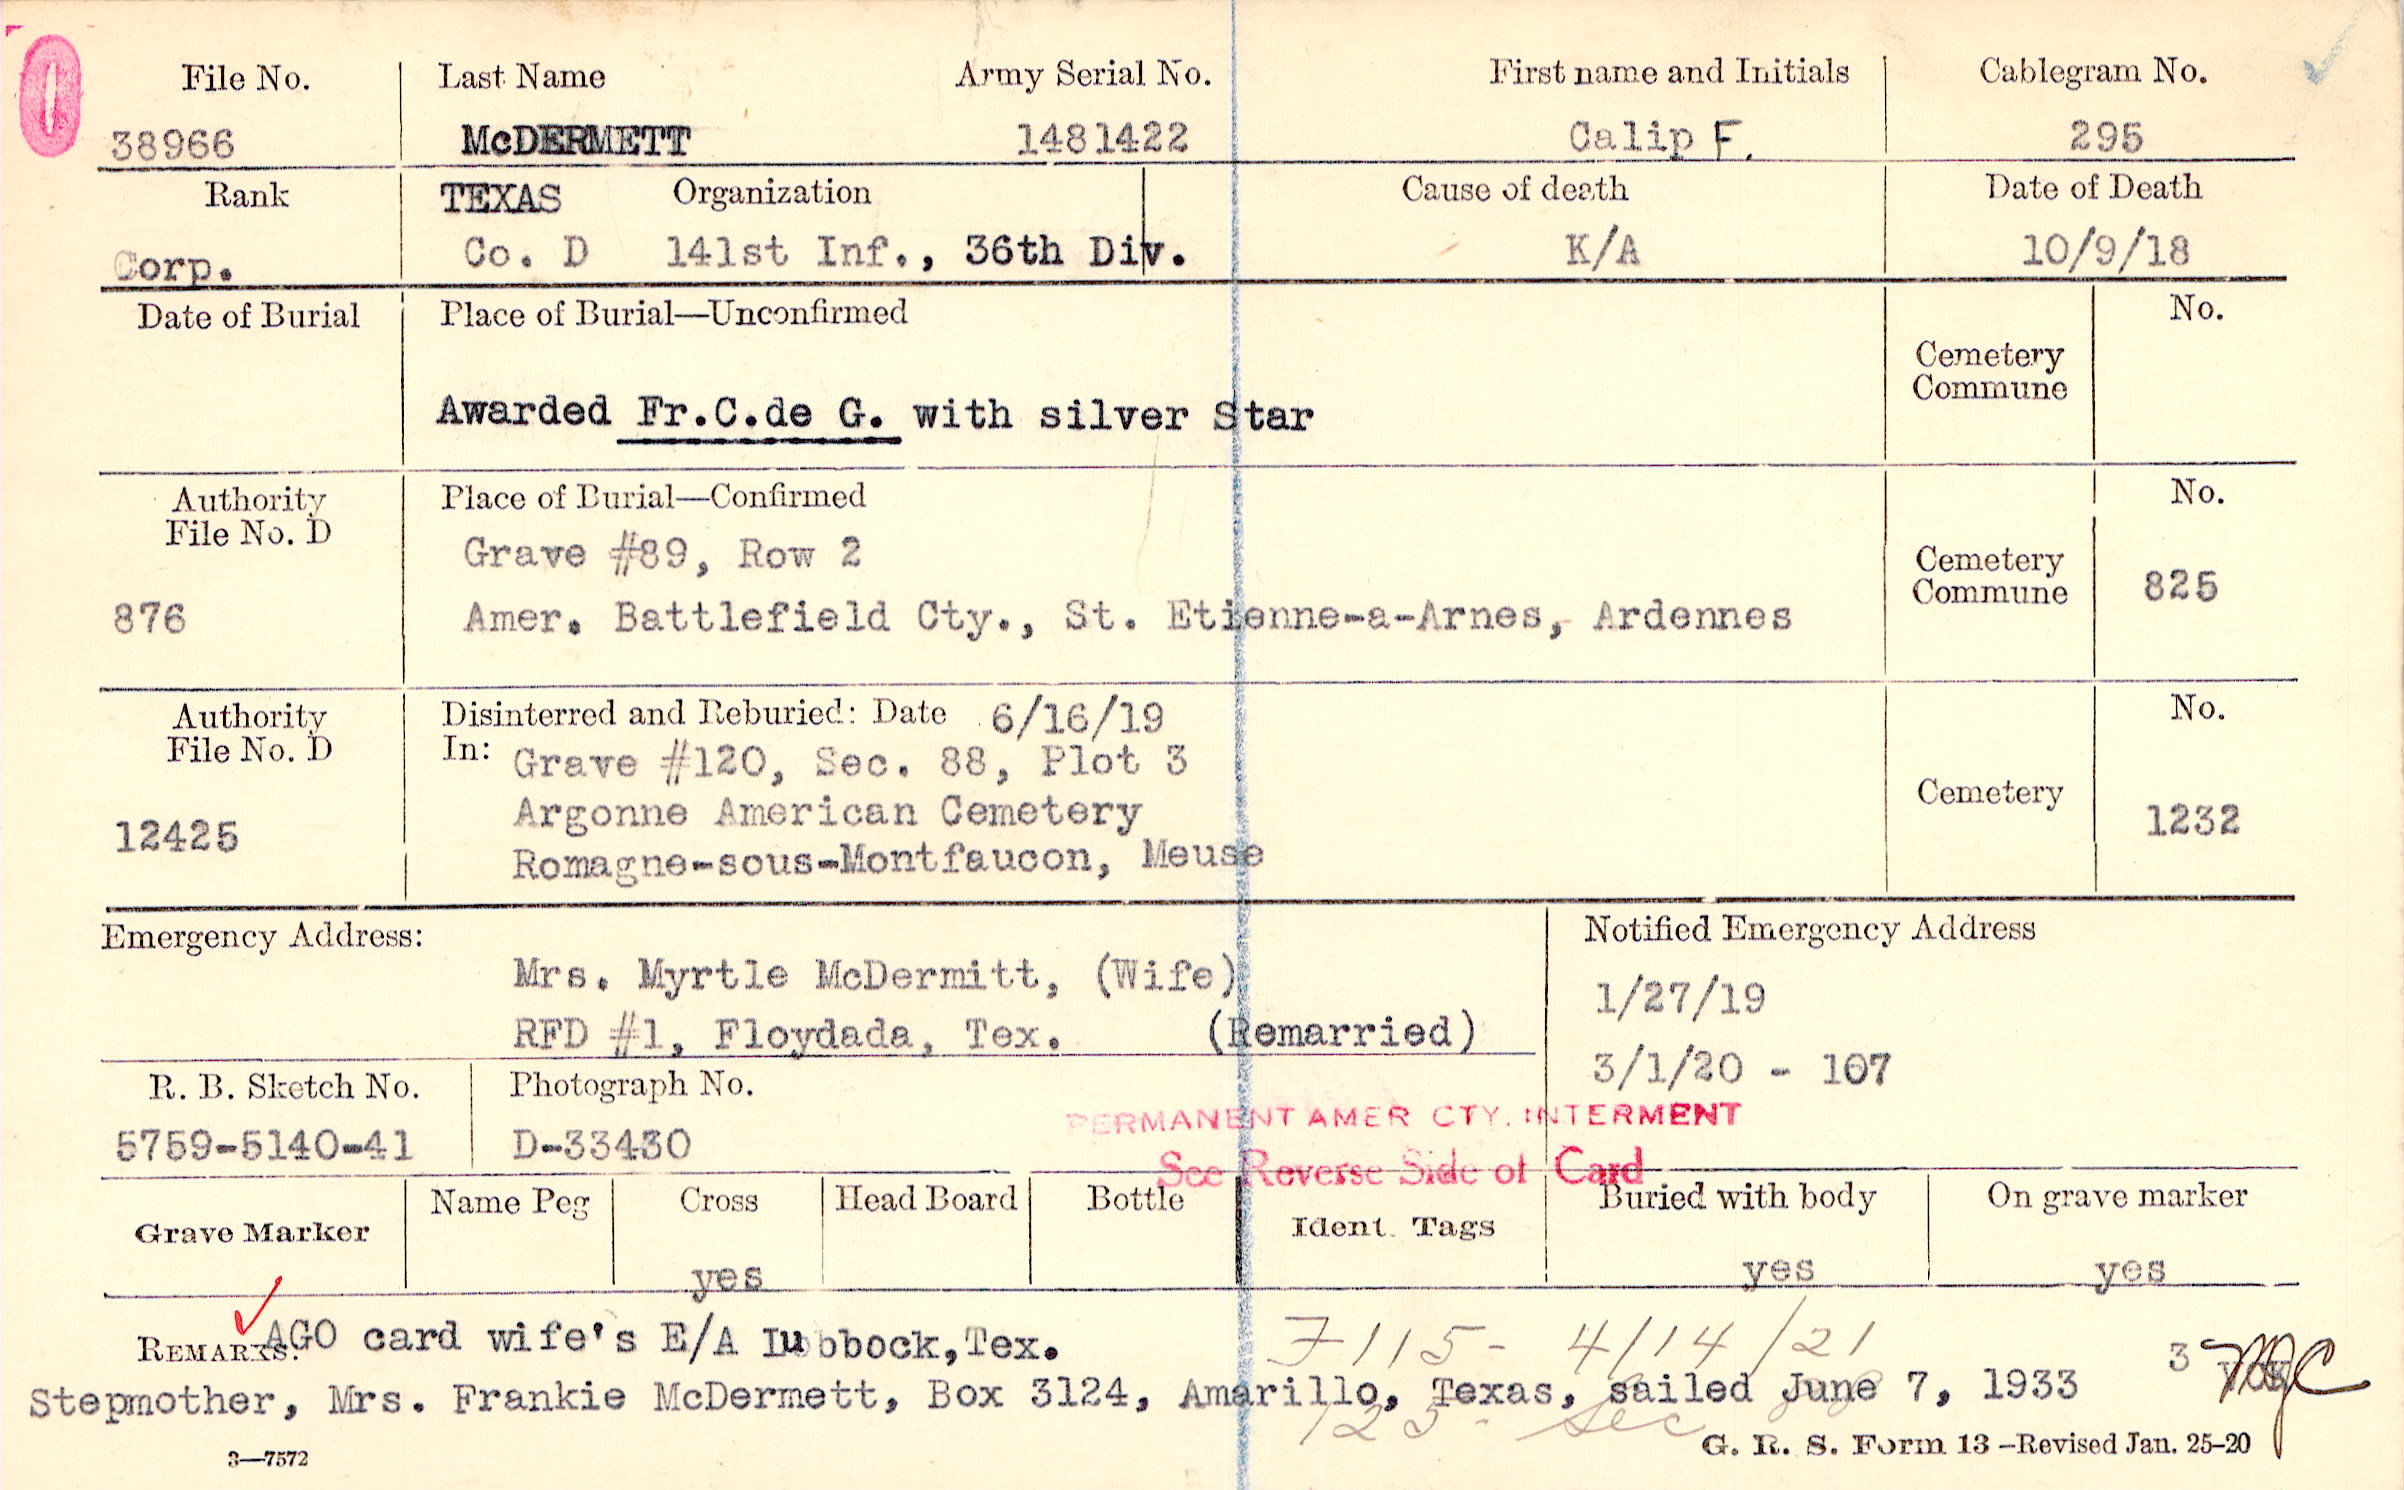 File No. Last Name Army Serial No. First name and Initials Cablegram No.
38966 McDERMETT 1481422 Calip F. 295
Rank TEXAS Organization Cause of death Date of Death
Corp. Co. D 141st Inf., 36th Div. K/A 10/9/18
Date of Burial Place of Burial—Unconfirmed No.
Cemetery
Commune
Awarded Fr.C.de G. with silver Star
Authority Place of Burial—Confirmed No.
File No. D Grave #89, Row 2 Cemetery
876 Amer. Battlefield Cty., St. Etienne-a-Arnes, Ardennes Commune 825
Authority Disinterred and Reburied: Date 6/16/19 No.
File No. D In: Grave #120, Sec. 88, Plot 3
12425 Argonne American Cemetery Cemetery 1232
Romagne-sous-Montfaucon, Meuse
Emergency Address: Notified Emergency Address
Mrs. Myrtle McDermitt, (Wife) 1/27/19
RFD #1, Floydada, Tex. (Remarried)
3/1/20 - 107
R. B. Sketch No. Photograph No.
PERMANENT AMER CTY. INTERMENT
5759-5140-41 D-33430
See Reverse Side of Card
Grave Marker Name Peg Cross Head Board Bottle Ident. Tags Buried with body On grave marker
yes yes yes
REMARKS: AGO card wife's E/A Lubbock,Tex. 7115- 4/14/21 3
Stepmother, Mrs. Frankie McDermett, Box 3124, Amarillo, Texas, sailed June 7, 1933
125- Sec
3—7572 G. R. S. Form 13—Revised Jan. 25-20